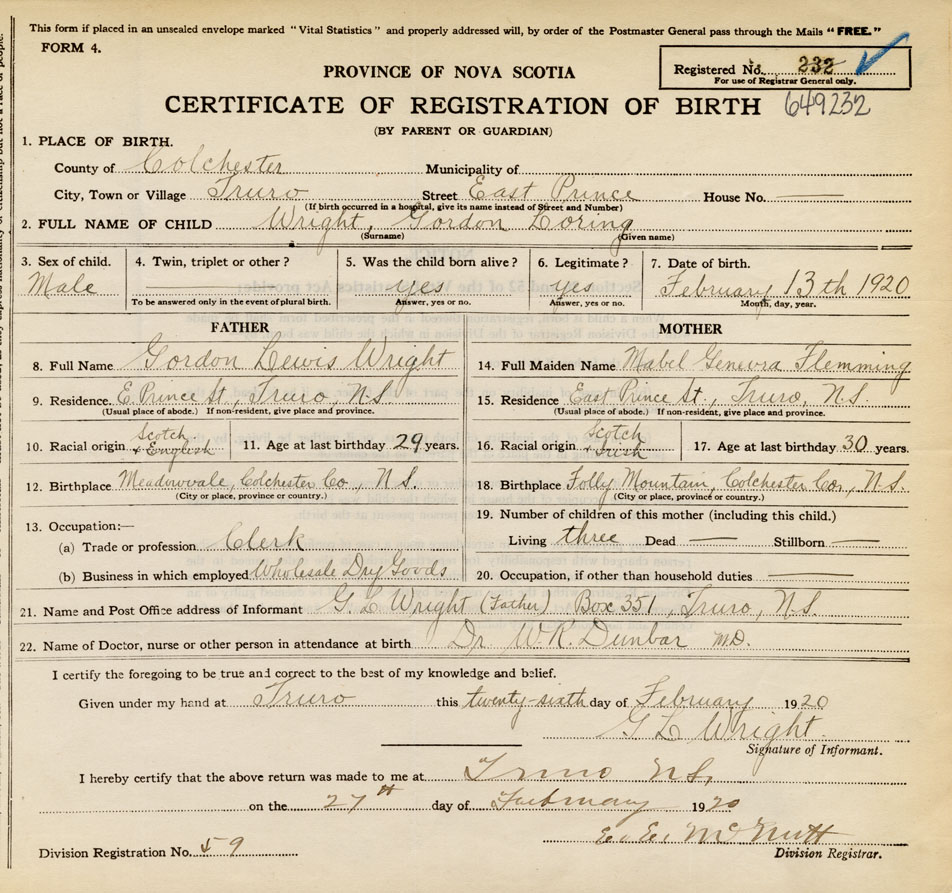 This form if placed in an unsealed envelope marked "Vital Statistics" and properly addressed will, by order of the Postmaster General pass through the Mails "FREE."
FORM 4.
Registered No. 232
For use of Registrar General only.
PROVINCE OF NOVA SCOTIA
CERTIFICATE OF REGISTRATION OF BIRTH 649232
(BY PARENT OR GUARDIAN)
1. PLACE OF BIRTH.
County of Colchester Municipality of
City, Town or Village Truro Street East Prince House No. —
(If birth occurred in a hospital, give its name instead of Street and Number)
2. FULL NAME OF CHILD Wright, Gordon Loring
(Surname) (Given name)
3. Sex of child. 4. Twin, triplet or other? 5. Was the child born alive? 6. Legitimate? 7. Date of birth.
Male — yes yes February 13th 1920
To be answered only in the event of plural birth. Answer, yes or no. Answer, yes or no. Month, day, year.
FATHER
8. Full Name Gordon Lewis Wright
9. Residence. E. Prince St., Truro, N.S.
(Usual place of abode.) If non-resident, give place and province.
10. Racial origin Scotch + English 11. Age at last birthday 29 years.
12. Birthplace Meadowvale, Colchester Co., N.S.
(City or place, province or country.)
13. Occupation:—
(a) Trade or profession Clerk
(b) Business in which employed Wholesale Dry Goods
MOTHER
14. Full Maiden Name Mabel Genevra Flemming
15. Residence East Prince St., Truro, N.S.
(Usual place of abode.) If non-resident, give place and province.
16. Racial origin Scotch + Irish 17. Age at last birthday 30 years.
18. Birthplace Folly Mountain, Colchester Co., N.S.
(City or place, province or country.)
19. Number of children of this mother (including this child.)
Living three Dead — Stillborn —
20. Occupation, if other than household duties —
21. Name and Post Office address of Informant G. L. Wright (Father) Box 351, Truro, N.S.
22. Name of Doctor, nurse or other person in attendance at birth Dr. W. R. Dunbar M.D.
I certify the foregoing to be true and correct to the best of my knowledge and belief.
Given under my hand at Truro this twenty-sixth day of February 1920
G L Wright.
Signature of Informant.
I hereby certify that the above return was made to me at Truro N.S,
on the 27th day of February 1920
E. E. McNutt
Division Registrar.
Division Registration No. 59